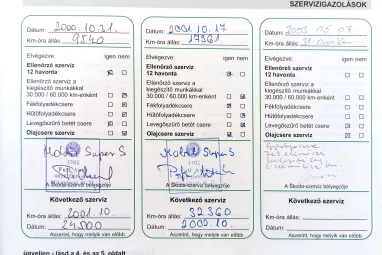 SZERVIZIGAZOLÁSOK
Dátum: 2000.10.31.
Km-óra állás: 9540
Elvégezve: igen nem
Ellenőrző szerviz
12 havonta
Ellenőrző szerviz a
kiegészítő munkákkal
30.000 / 60.000 km-enként
Fékfolyadékcsere
Hűtőfolyadékcsere
Levegőszűrő betét csere
Olajcsere szerviz
Mobil Super S
1702
A Škoda-szerviz bélyegzője
Következő szerviz
Km-óra állás: 2001.10.
Dátum: 24500
Aszerint, hogy melyik van előbb.
Dátum: 2001.10.17
Km-óra állás: 17361
Elvégezve: igen nem
Ellenőrző szerviz
12 havonta
Ellenőrző szerviz a
kiegészítő munkákkal
30.000 / 60.000 km-enként
Fékfolyadékcsere
Hűtőfolyadékcsere
Levegőszűrő betét csere
Olajcsere szerviz
Mobil Super S
1702
A Škoda-szerviz bélyegzője
Következő szerviz
Km-óra állás: 32360
Dátum: 2002.10.
Aszerint, hogy melyik van előbb.
Dátum: 2003.05.07
Km-óra állás:
Elvégezve: igen nem
Ellenőrző szerviz
12 havonta
Ellenőrző szerviz a
kiegészítő munkákkal
30.000 / 60.000 km-enként
Fékfolyadékcsere
Hűtőfolyadékcsere
Levegőszűrő betét csere
Olajcsere szerviz
A Škoda-szerviz bélyegzője
Következő szerviz
Km-óra állás:
Dátum:
Aszerint, hogy melyik van előbb.
ügyeljen - lásd a 4. és az 5. oldalt